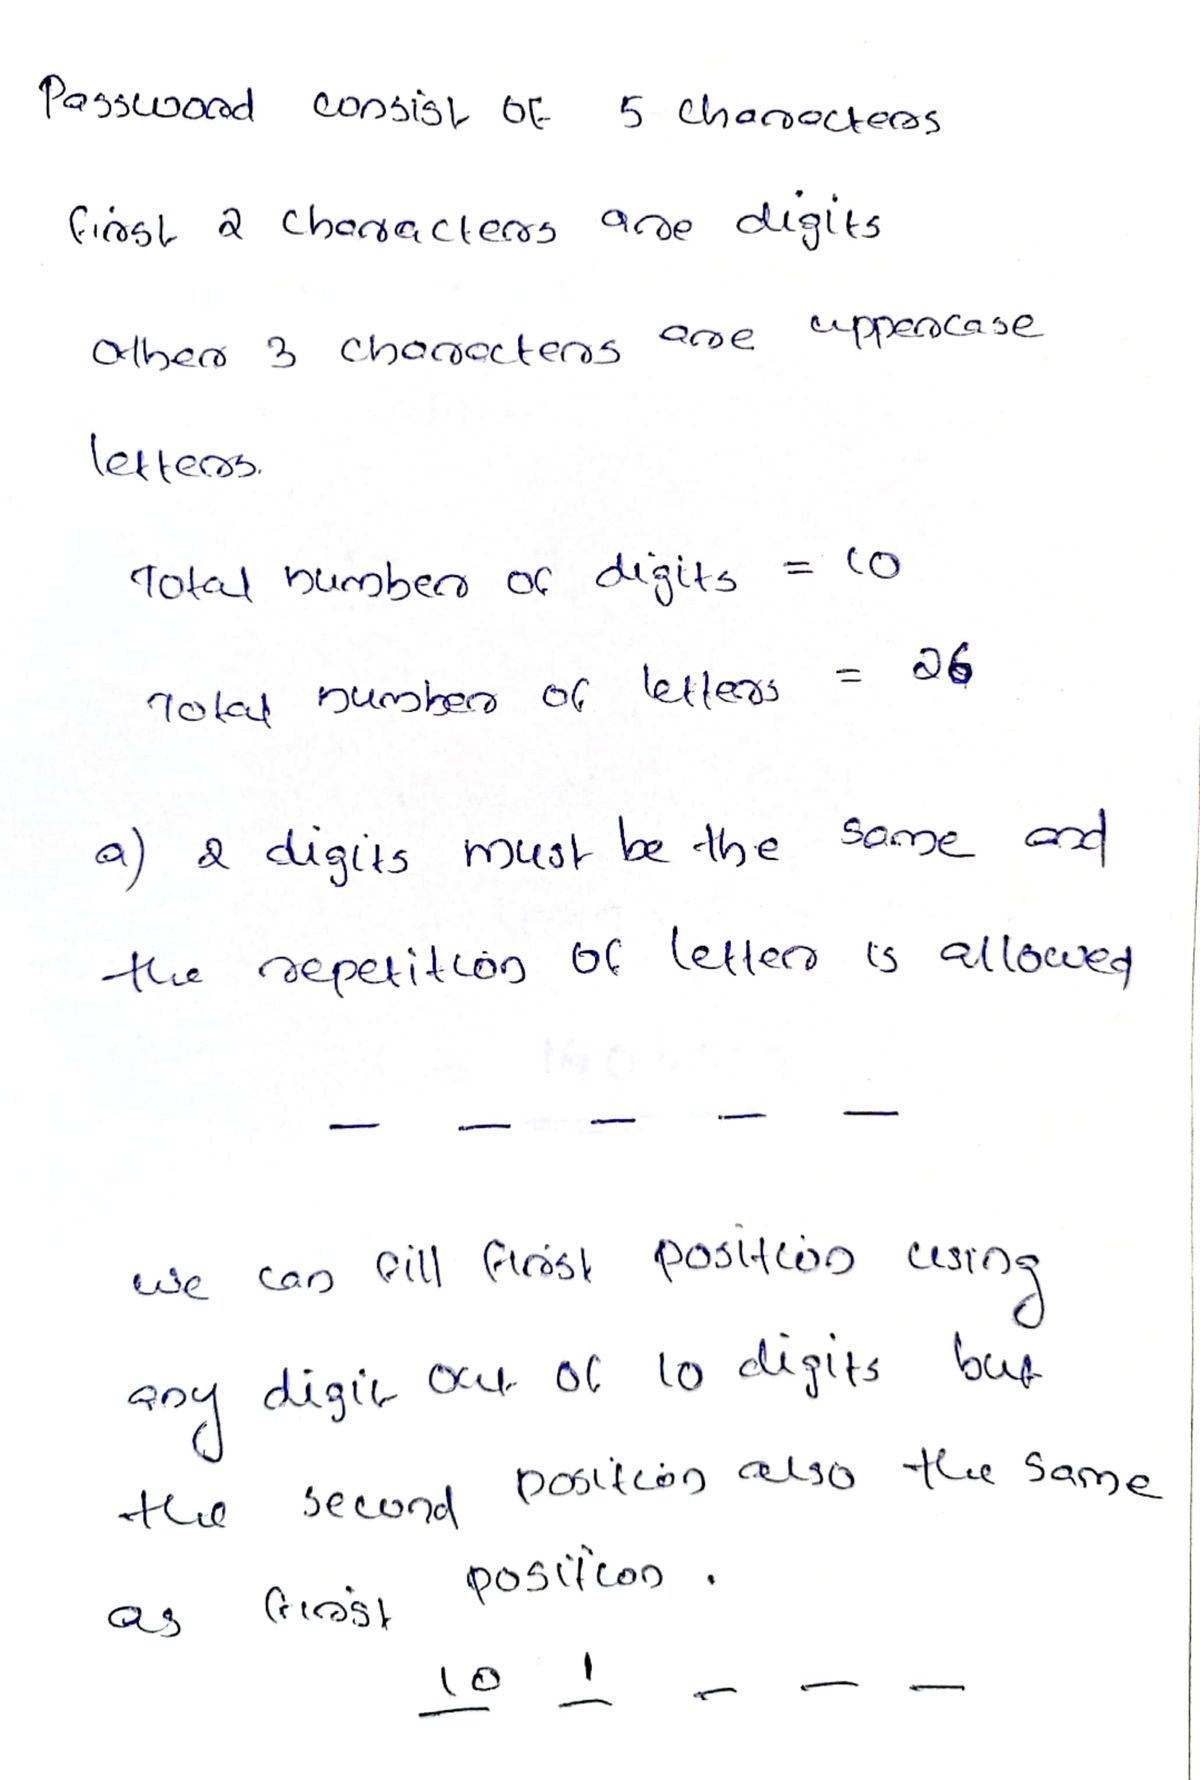 Password consist of 5 characters
first 2 characters are digits
other 3 characters are uppercase
letters.
Total number of digits = 10
Total number of letters = 26
a) 2 digits must be the same and
the repetition of letter is allowed
_ _ _ _ _
we can fill first position using
any digit out of 10 digits but
the second position also the same
as first position.
10 1 _ _ _